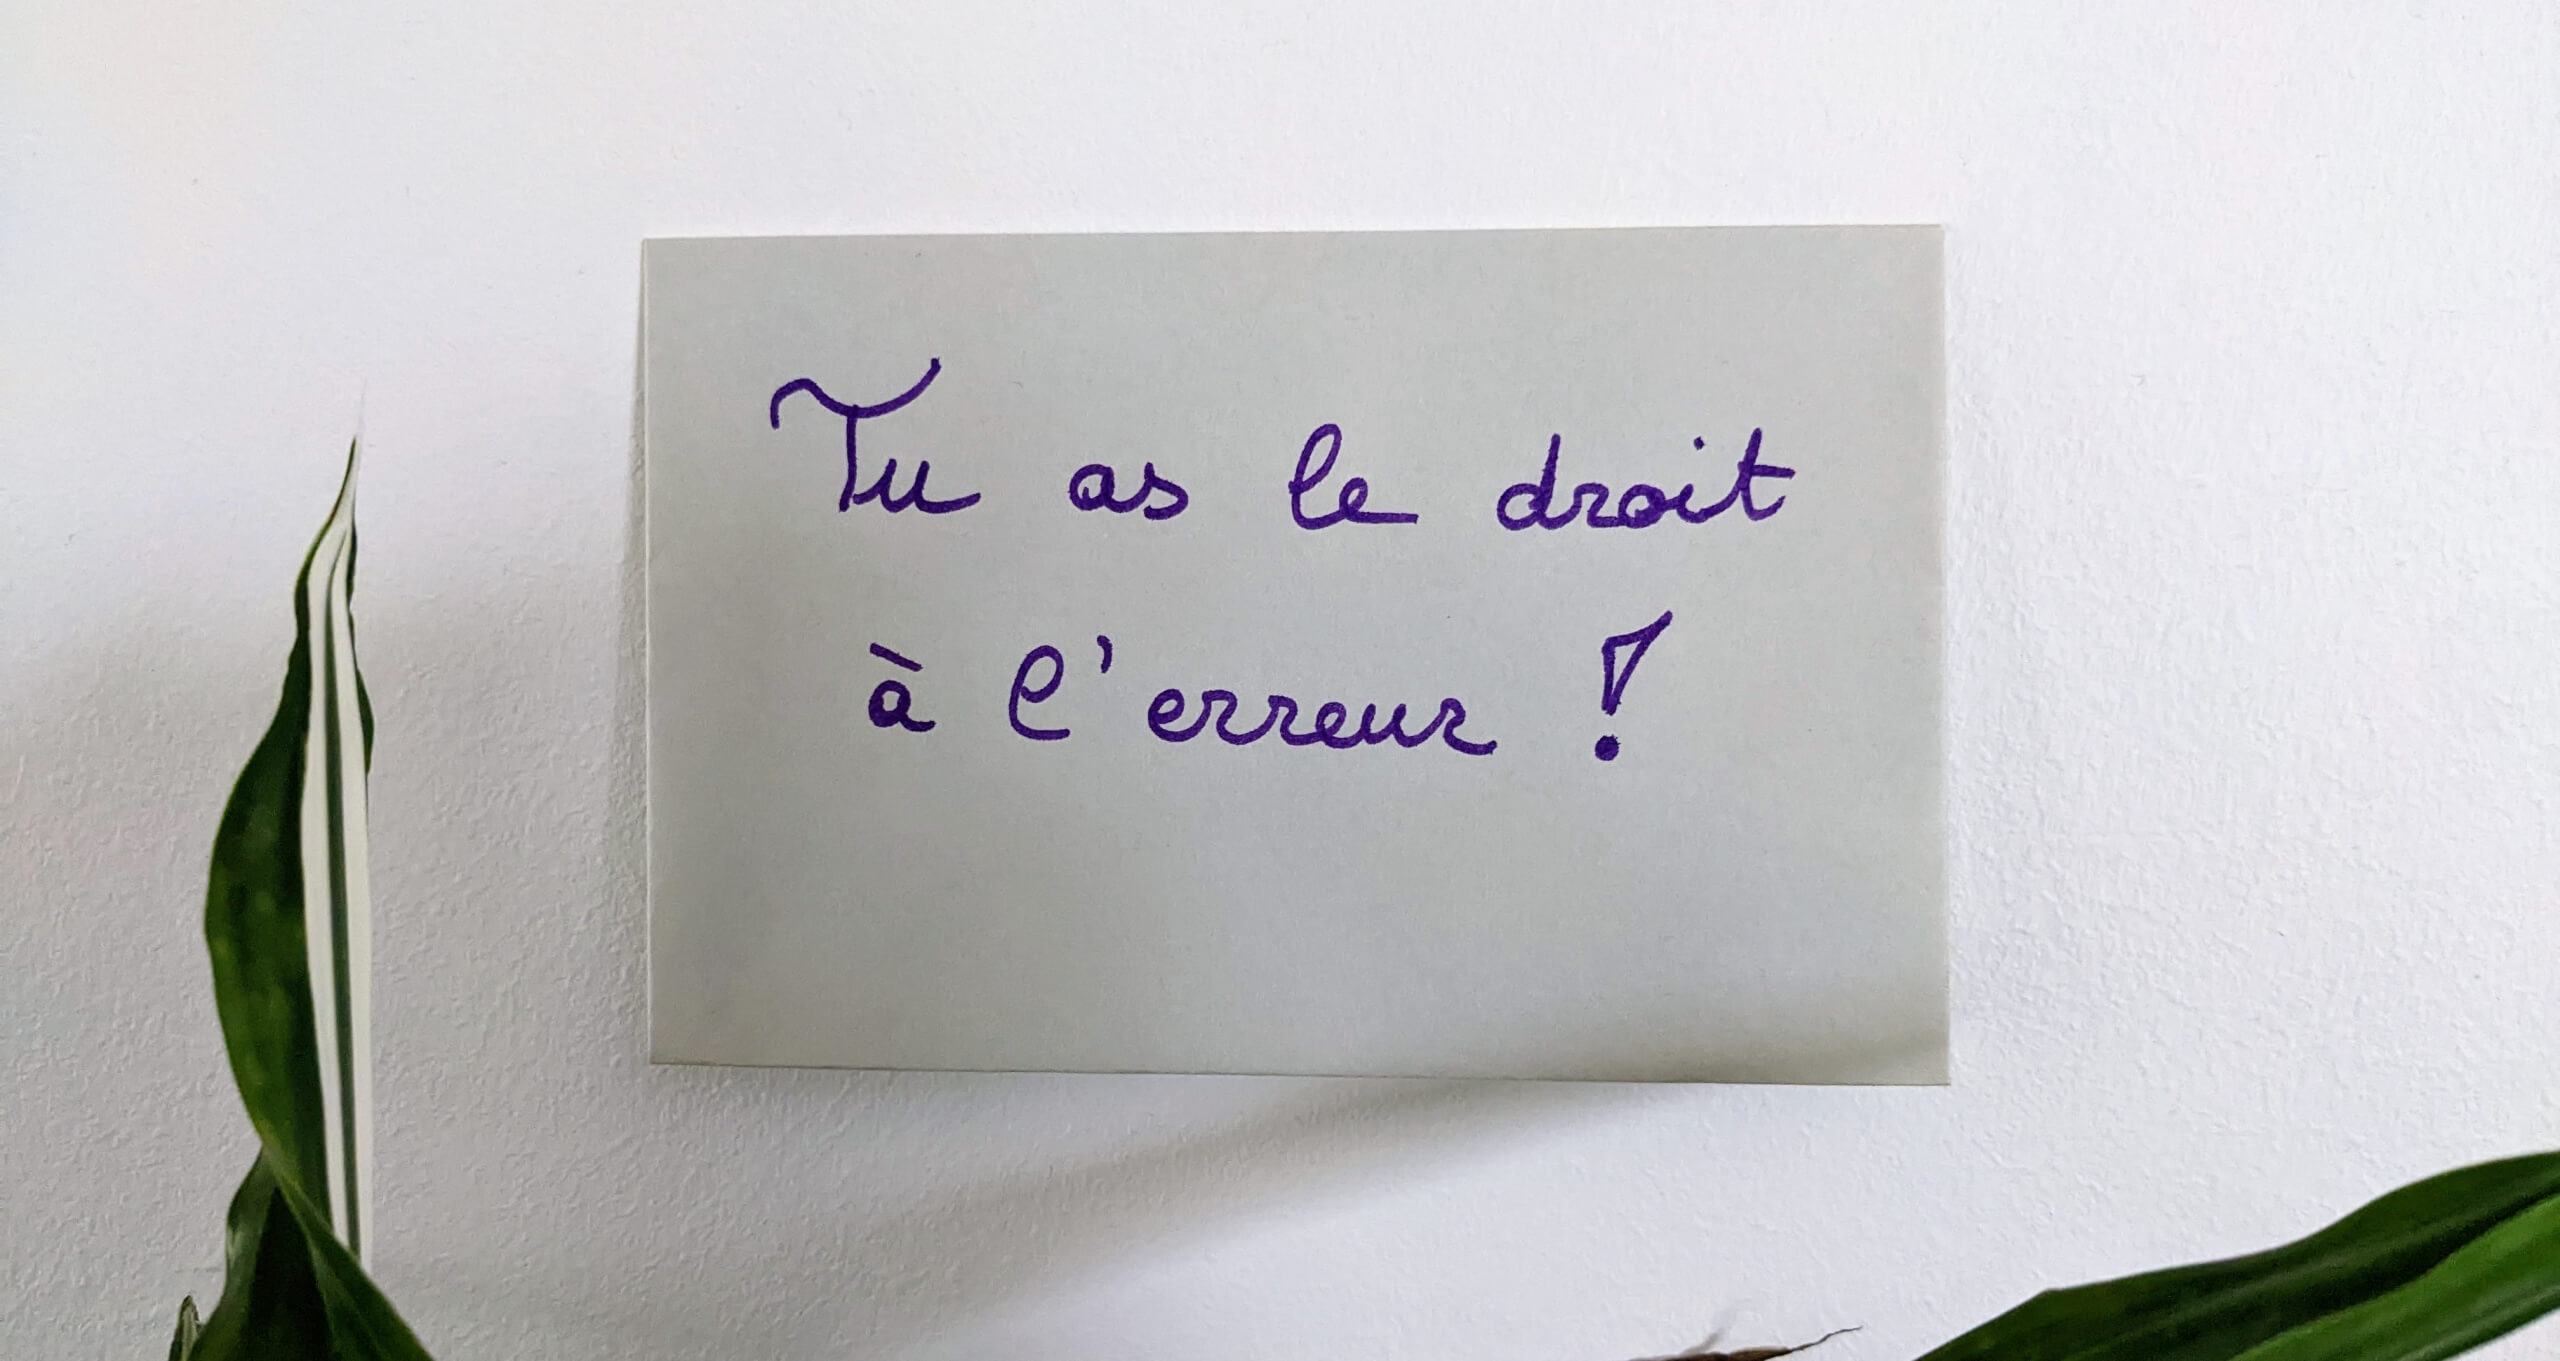 Tu as le droit
à l'erreur !